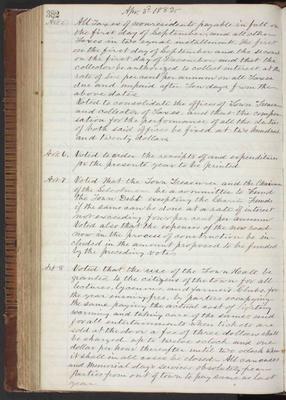 382
Apr 5th 1880
Art 5. All Taxes of nonresidents payable in full on
the first day of September, and all other
Taxes in two equal installments. The first
on the first day of September and the second
on the first day of December and that the
collector be authorized to collect interest at a
rate of six per cent per annum on all taxes
due and unpaid after ten days from the
above dates.
Voted to consolidate the offices of Town Treasurer
and collector of Taxes and that the compen
sation for the performance of all the duties
of both said offices be fixed at two hundred
and twenty dollars
Art 6. Voted to order the receipts and expenditures
to be printed
Art 7. Voted That the Town Treasurer and the Chairman
of the Selectmen be a committee to Fund
the Town Debt excepting the Funds
if the same can be done at a rate of interest
not exceeding four per cent per annum
Voted also that the expenses of the new road
now in the process of construction be in
cluded in the amount proposed to be funded
by the preceding vote.
Art 8 Voted that the use of the Town Hall be
granted to the citizens of the town for all
lectures, lyceums and farmers' clubs for
the year ensuing free, by parties occupying
the same paying the actual cost of lighting
warming and taking care of the same and
for all entertainments when tickets are
sold at the door a fee of three dollars shall
be charged up to twelve oclock and one
dollar per hour thereafter until two oclock when
it shall in all cases be closed. All caucuses
and Memorial days services absolutely free.
Parties from out of town to pay same as last
year